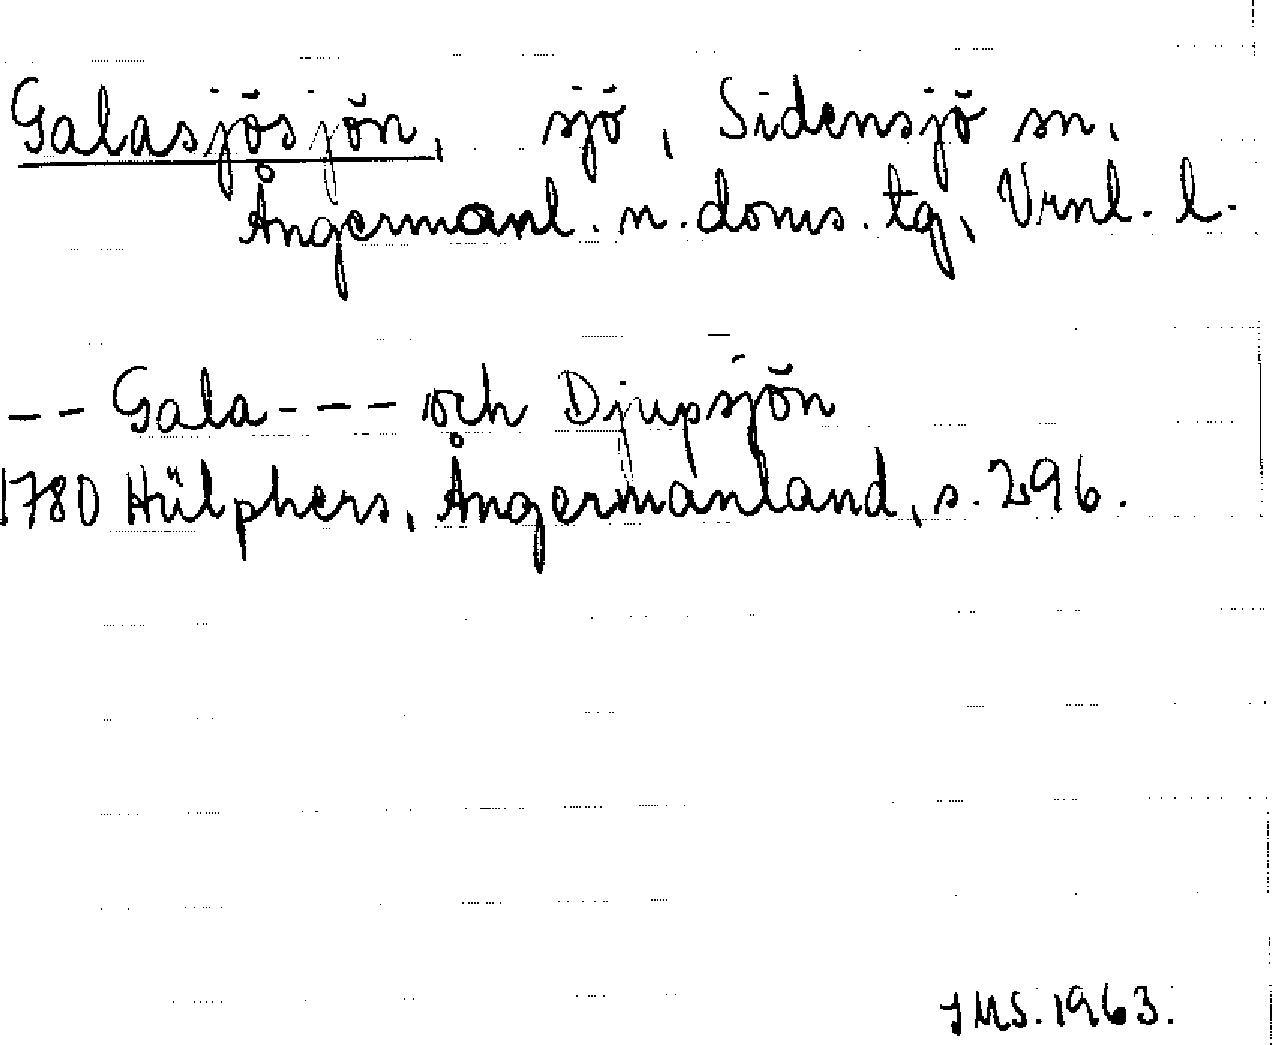 Galasjösjön, sjö, Sidensjö sn,
Ångermanl. n. doms. tg, Vrnl. l.
-- Gala --- och Djupsjön
1780 Hülphers, Ångermanland, s. 296.
JMS. 1963.